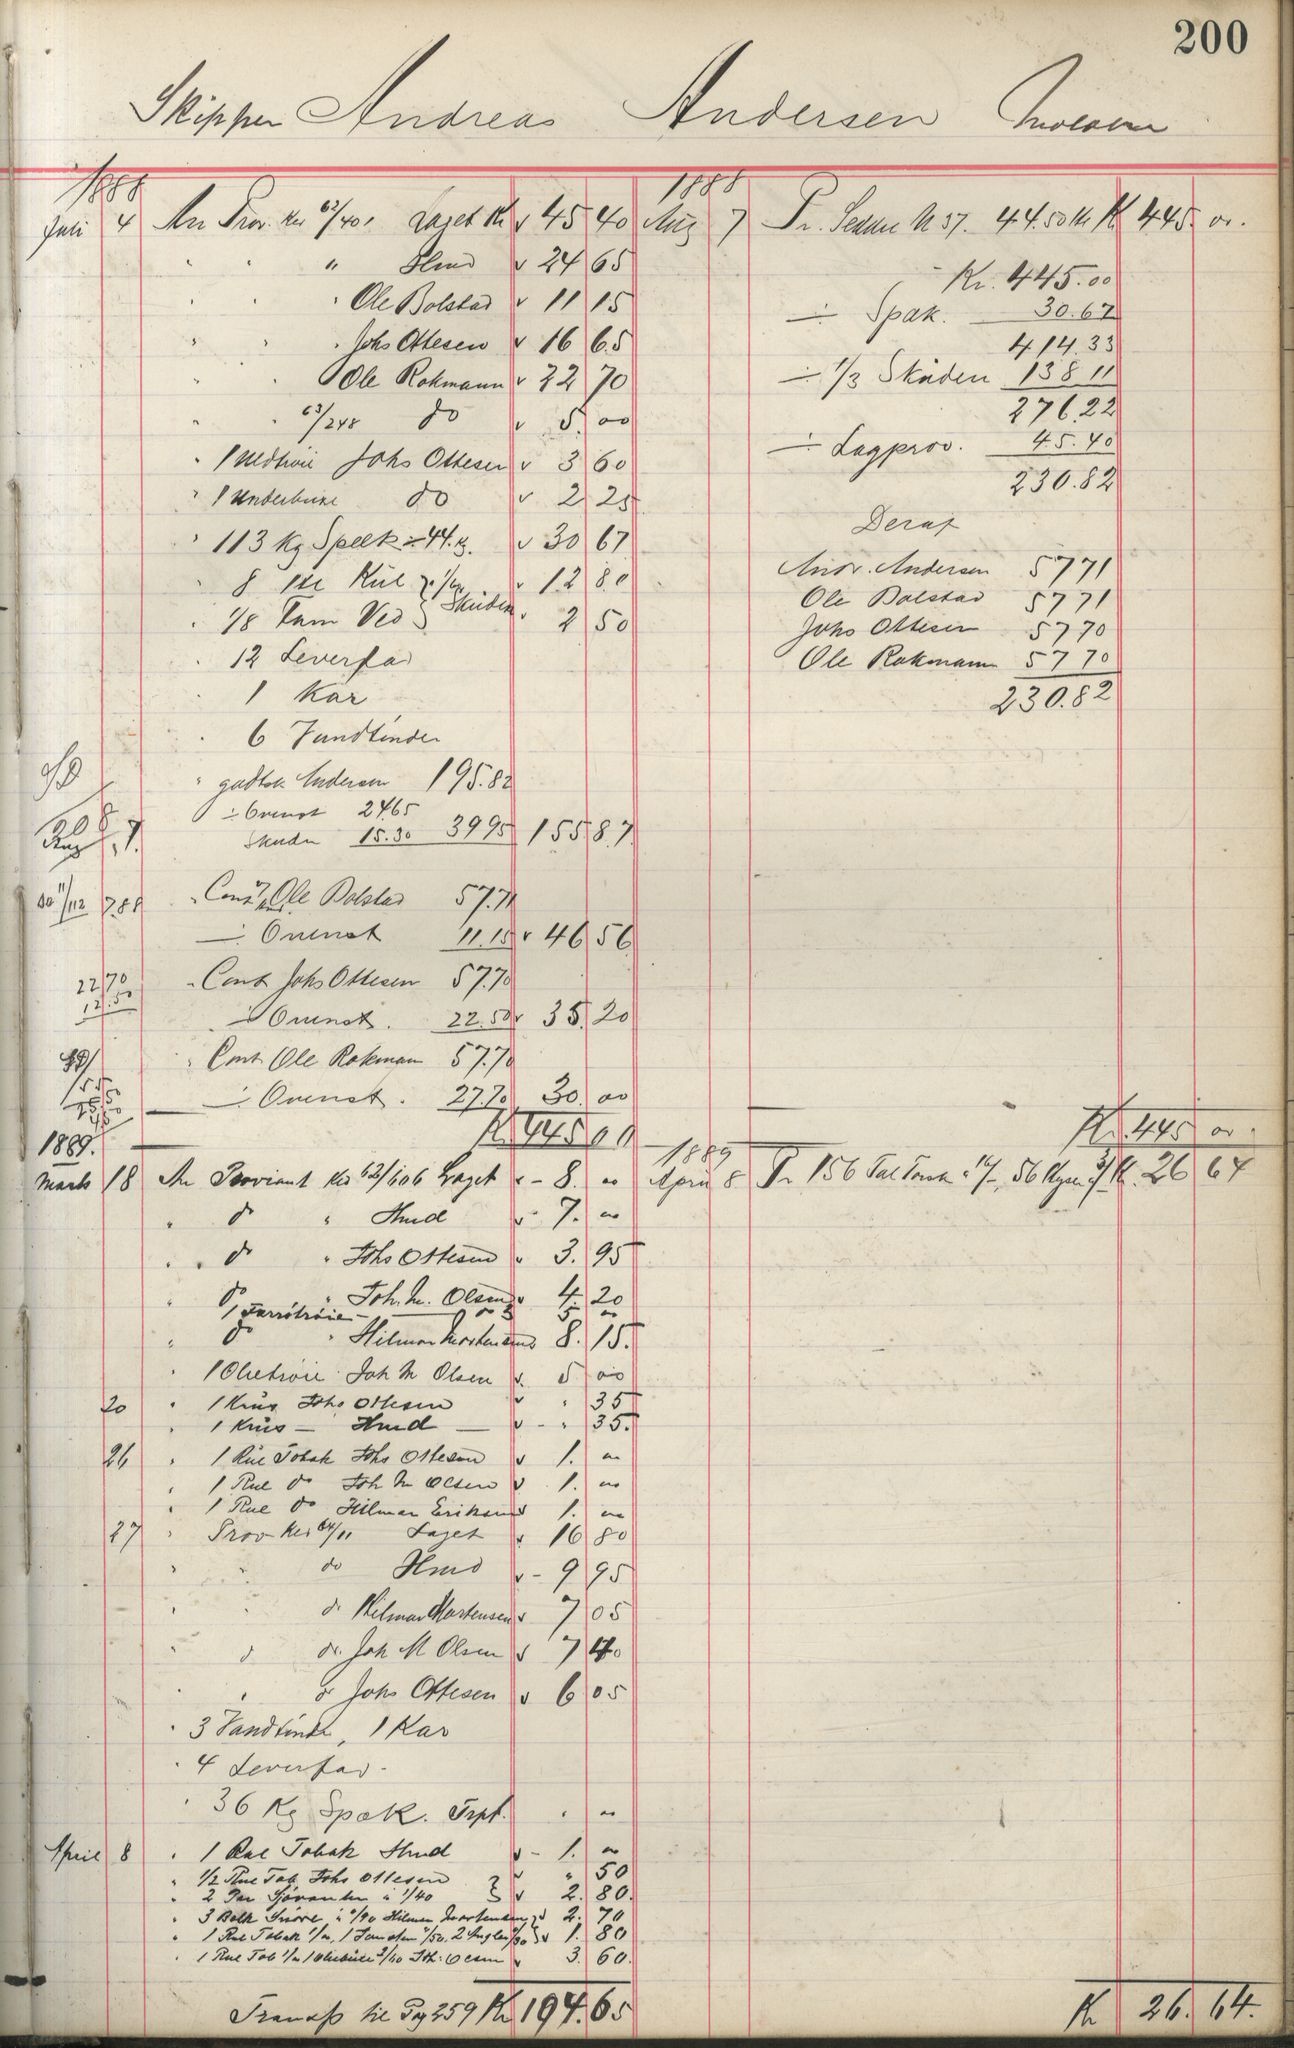 200
Skipper Andreas Andersen
1888
Juli 4 An Prov. Kb 62/401 Laget Kr 45 40
" " " Hmd 24 65
" " " Ole Bolstad 11 15
" " " Johs Ottesen 16 65
" " Ole Rokmann 22 70
" " 63/248 do 5. 00
" 1 Uldtröie Johs Ottesen 3 60
" 1 Underbuxe do 2 25
" 113 Kg Spæk ÷ 44. Kg. 30 67
" 8 Kül 12 80
" 1/8 Favn Ved } Skuden 2 50
" 12 Leverfad
" 1 Kar
" 6 Vandtönder
" godtsk Andersen 195.82
÷ Ovenst 24.65
Aug 7. Skuden 15.30 39 95 155 87
" Cont Ole Bolstad 57.71
÷ Ovenst 11.15 46 56
22 70
12.50
" Cont Johs Ottesen 57.70
÷ Ovenst. 22.50 35. 20
" Cont Ole Rokmann 57.70
÷ Ovenst. 27.70 30. 00
Kr 445 00
1888
Aug 7 Pr. Seddel N 37. 44.50 Kr 445. 00.
Kr. 445.00
÷ Spæk. 30.67
414.33
÷ 1/3 Skuden 138 11
276.22
÷ Lagprov. 45.40
230.82
Deraf
Andr. Andersen 57 71
Ole Bolstad 57 71
Johs Ottesen 57 70
Ole Rokmann 57 70
230.82
Kr. 445 00.
1889.
Marts 18 An Proviant Kb 62/606 Laget - 8. 00
" do " Hmd 7. 00
" do " Johs Ottesen 3. 95
" do " Joh. M. Olsen 4. 20
1 do 5 00
" do " Hilmar Mortensens 8. 15.
" 1 Olietröie Joh M Olsen 5 00
20 " 1 Krus Johs Ottesen " 35
" 1 Krus - Hmd - " 35.
26 " 1 Rul Tobak Johs Ottesen 1. 00
" 1 Rul do Joh M Olsen 1. 00
" 1 Rul do Hilmar Eriksen 1. 00
27 " Prov Kb 64/11 Laget 16 80
" " do Hmd - 9 95
" " do Hilmar Mortensen 7 05
" " do Joh M Olsen 7 40
" " do Johs Ottesen 6 05
" 3 Vandtönde, 1 Kar
" 4 Leverfad.
" 36 Kg Spæk. Trpt. " 00
April 8 " 1 Rul Tobak Hmd - 1. 00
" 1/2 Rul Tob Johs Ottesen " 50
" 2 Par Sjövanter a 1/40 2. 80.
" 3 Bolk Snöre a "/90 Hilmar Mortensen 2. 70
" 1 Rul Tobak 1/00, 1 "/50, 2 Angler "/30 1. 80
" 1 Rul Tob 1/00 1 Oliebuxe 2/60 Joh. Olsen 3. 60.
Transp til Pag 259 Kr 194.65
1889
April 8 Pr 156 Tal Torsk a 16/-, 56 Hyser 3/- Kr. 26 64
Kr 26. 64.